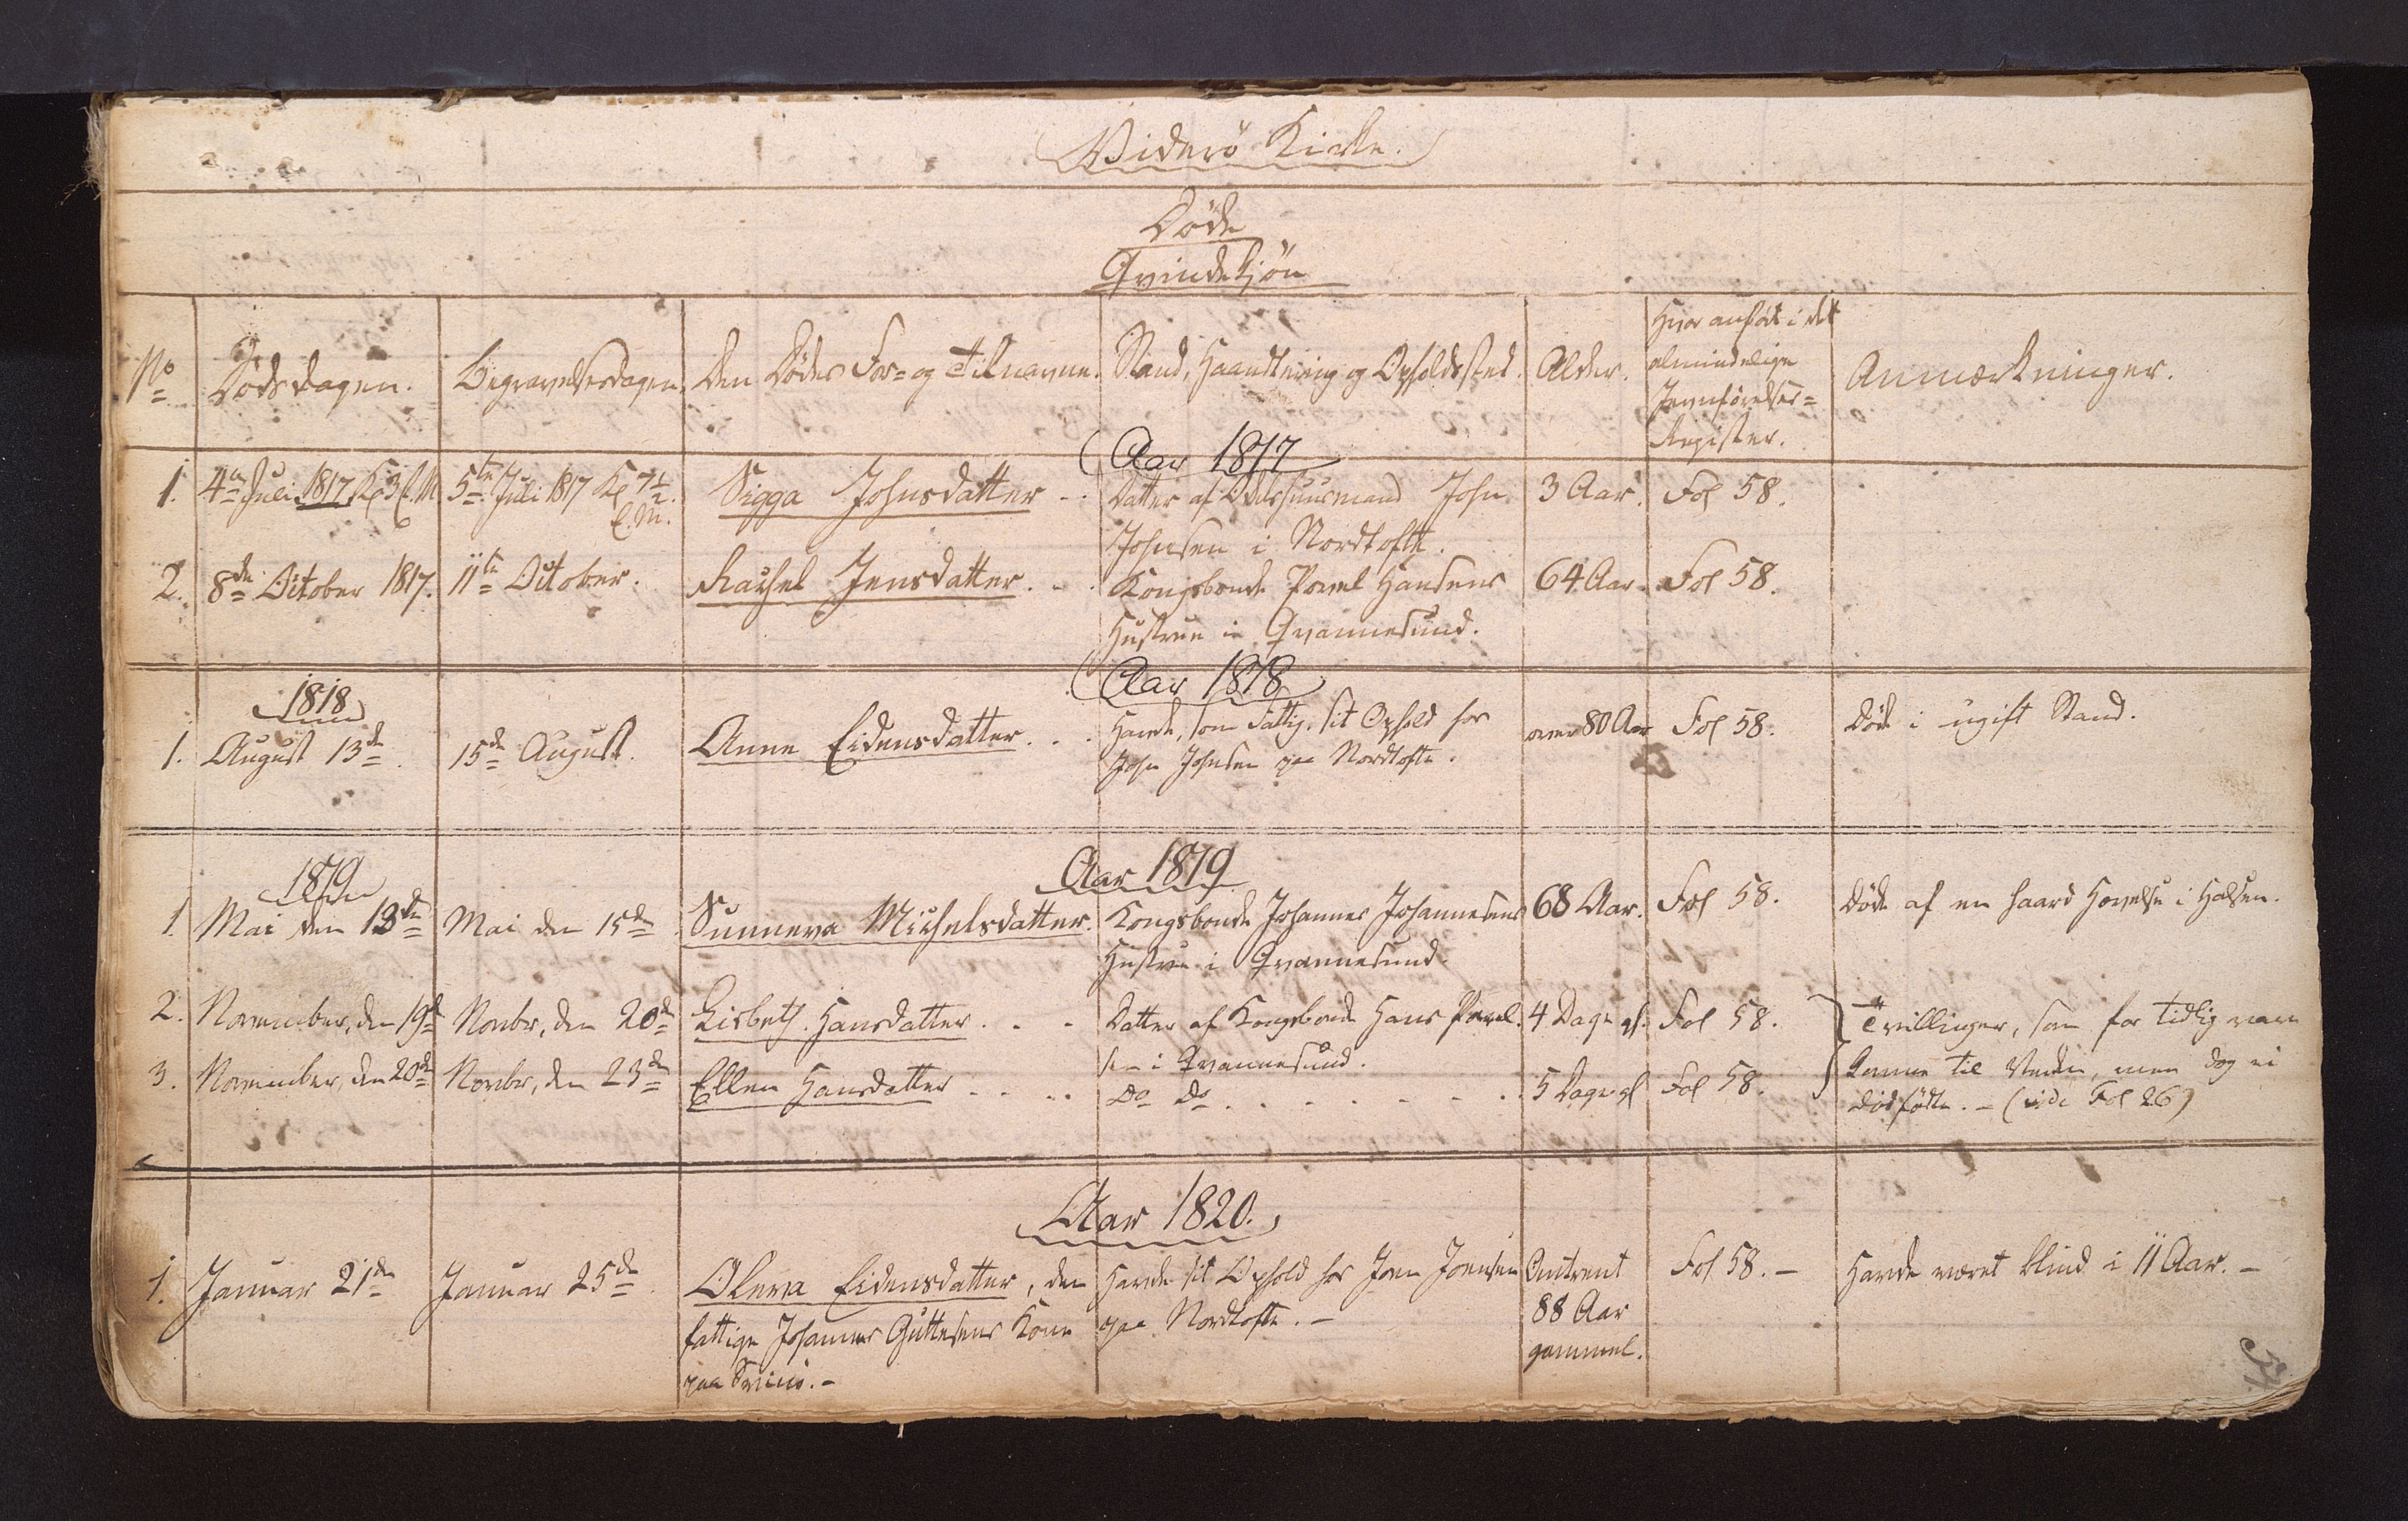 Viderö Kirke.
Döde
Qvindekjön
No
Dödsdagen.
Begravelsesdagen.
Den Dödes For= og Tilnavne.
Stand, Haandtering og Opholdssted.
Alder.
Hvor anfört i det
almindelige
Jevnförelses=
Register.
Anmærkninger.
Aar 1817
1. 4de Juli 1817 Kl 3 E.M. 5te Juli 1817 Kl 7½ Sigga Johnsdatter .. Datter af Huusmand John 3 Aar. Fol 58.
E.M.
Johnsen i Nordtofte.
2. 8de October 1817. 11te October. Rachel Jensdatter. .. Kongsbonde Povel Hansens 64 Aar. Fol 58.
Hustrue i Qvannesund.
Aar 1818
1818
1. August 13de. 15de August. Anne Eidensdatter. .. Havde, som fattig, sit Ophold hos over 80 Aar Fol 58. Döde i ugift Stand.
John Johnsen paa Nordtofte.
Aar 1819
1819
1. Mai den 13de Mai den 15de Sunneva Michelsdatter. Kongsbonde Johannes Johannesens 68 Aar. Fol 58. Döde af en haard Hævelse i Halsen.
Hustrue i Qvannesund.
2. November, den 19de Novbr, den 20de Lisbeth Hansdatter. . . Datter af Kongsbonde Hans Povel- 4 Dage gl. Fol 58. Tvillinger, som for tidlig vare
sen i Qvannesund.
3. November, den 20de Novbr, den 23de Ellen Hansdatter . . .. Do Do. . . . . . . . 5 Dage gl Fol 58. komne til Verden, men dog ei
dödfödte. - (vide Fol 26)
Aar 1820.
1. Januar 21de Januar 25de. Olena Eidensdatter, den Havde sit Ophold hos Joen Joensen Omtrent Fol 58. - Havde været blind i 11 Aar. -
fattige Johannes Guttesens Kone paa Nordtofte. - 88 Aar
paa Svinö. - gammel.